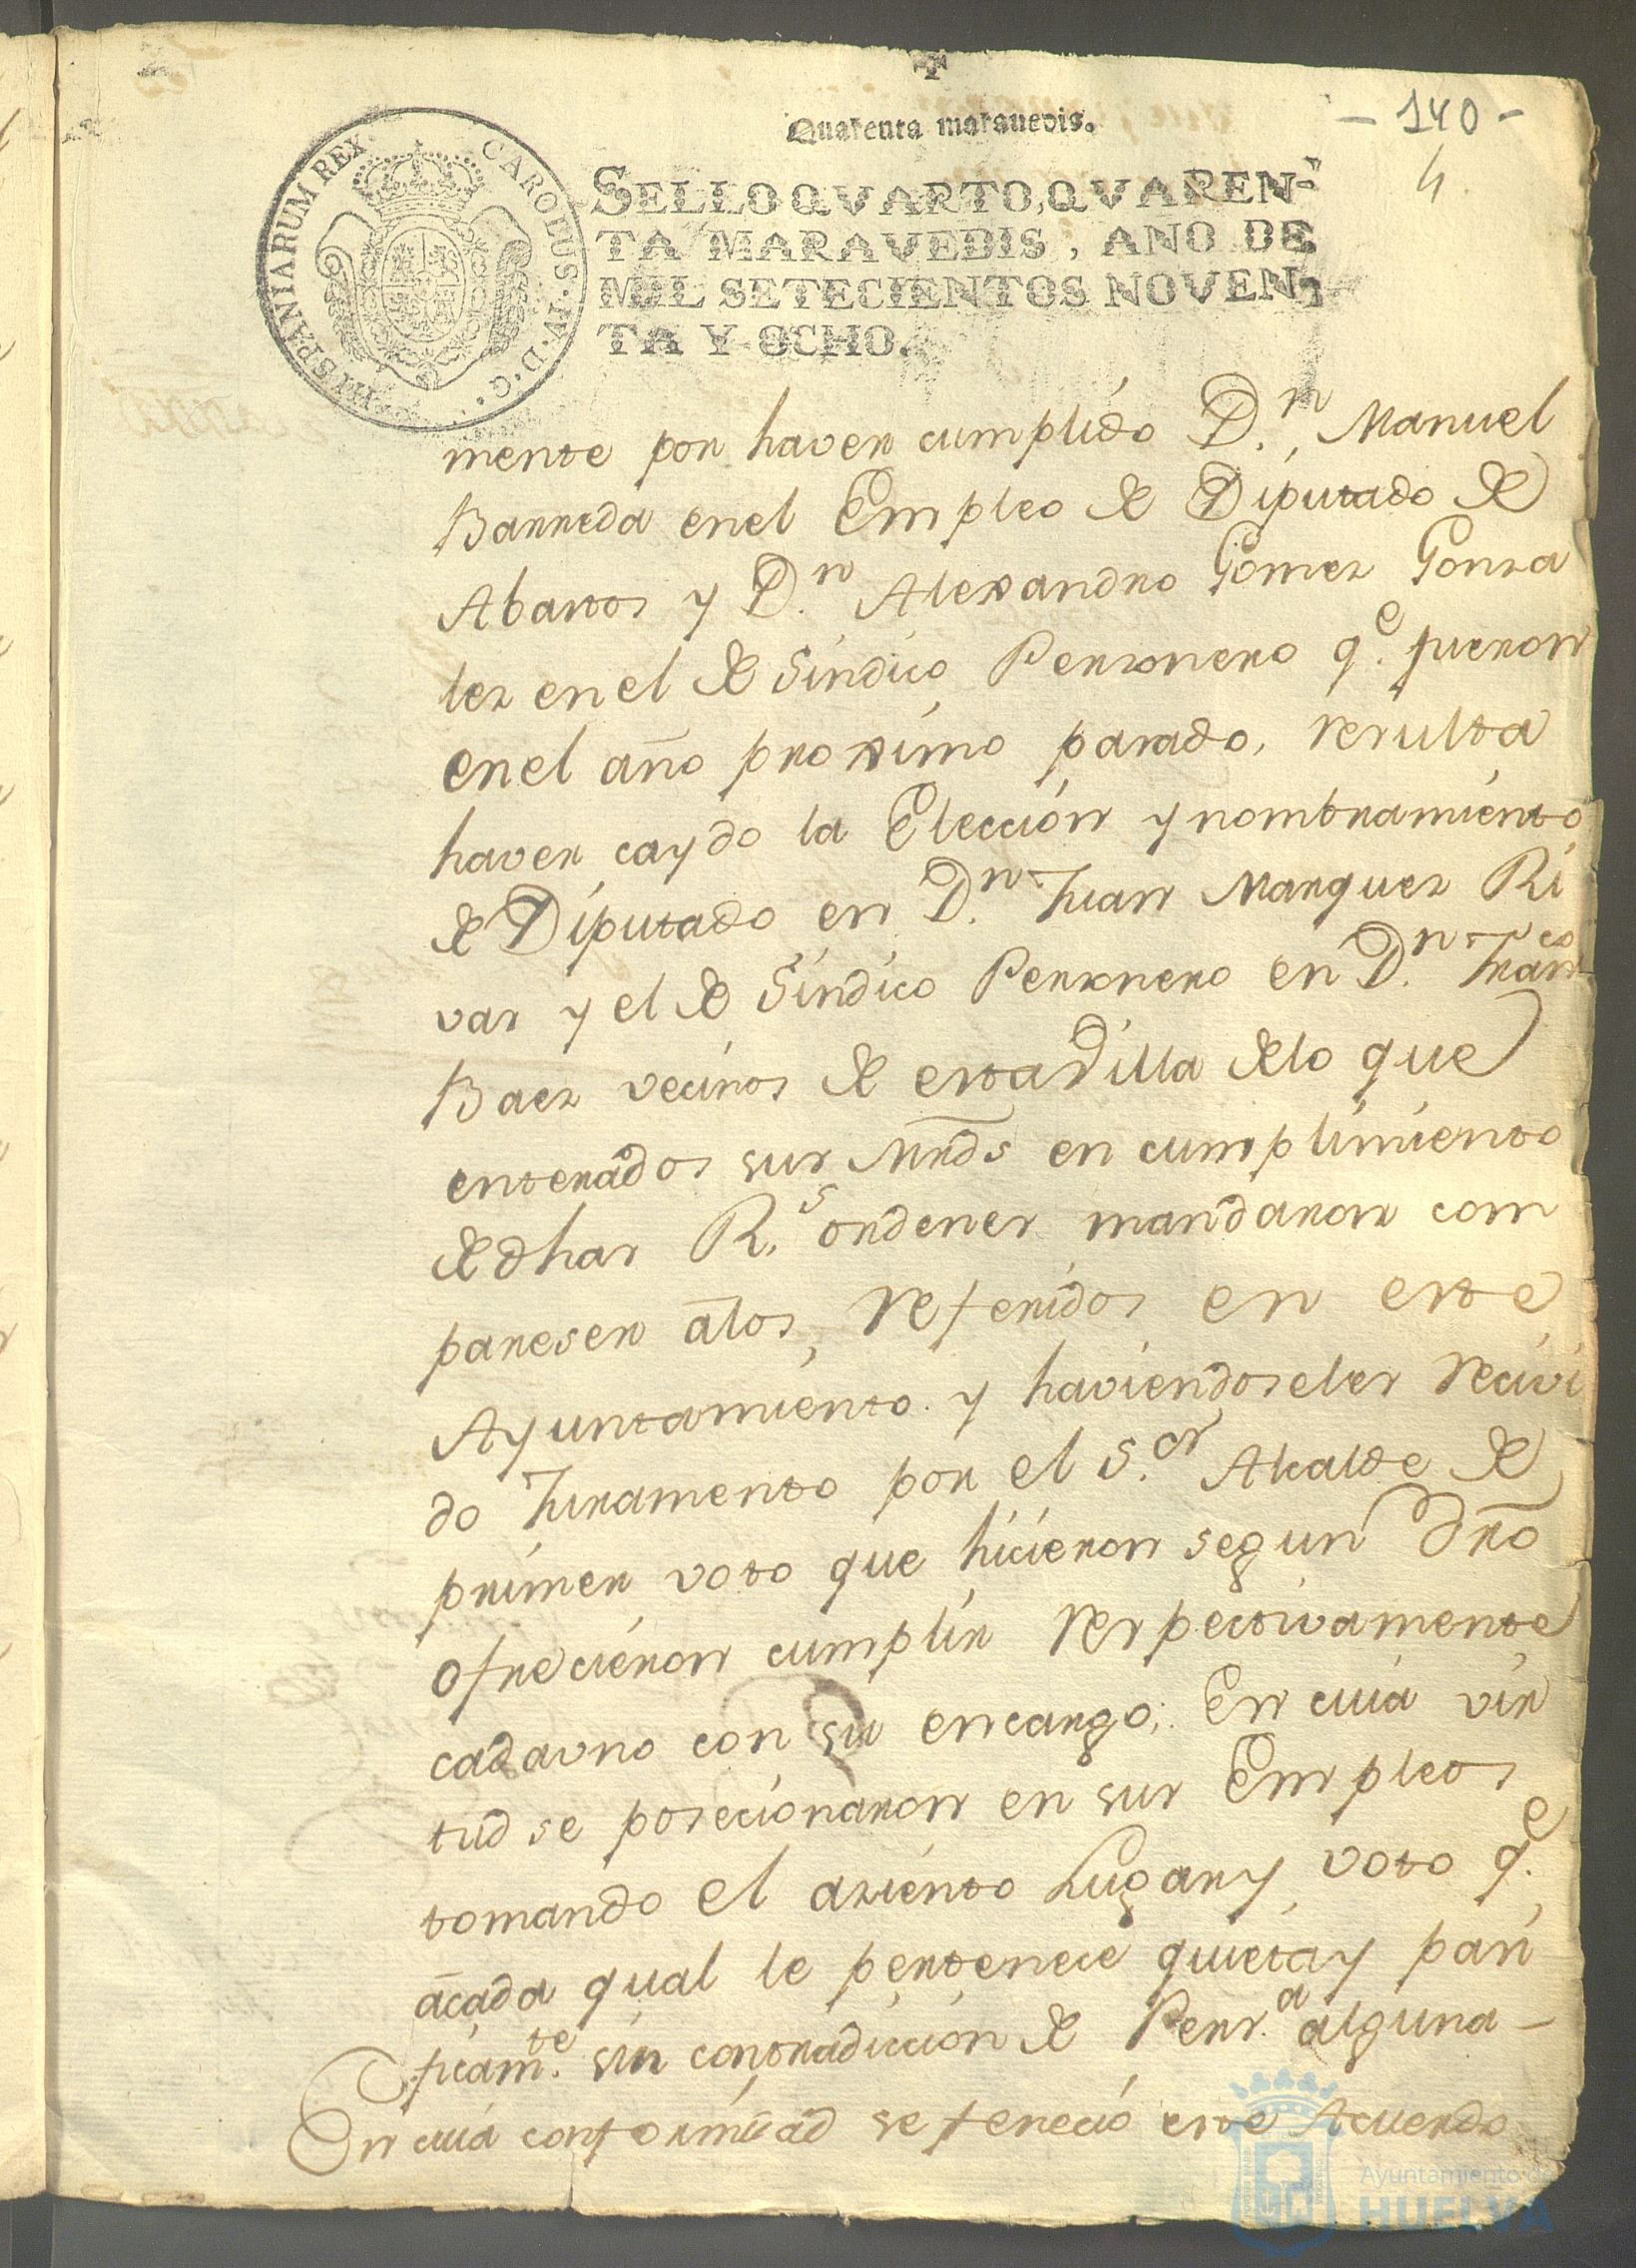 - 140 -
4
Quarenta maravedis.
SELLO QVARTO, QVAREN-
TA MARAVEDIS, AÑO DE
MIL SETECIENTOS NOVEN-
TA Y OCHO.
CAROLUS·IV·D·G· HISPANIARUM REX
mente por haver cumplido D.n Manuel
Barreda enel Empleo de Diputado de
Abastos y D.n Alexandro Gomez Gonza
lez en el de Sindico Personero q.e fueron
en el año proximo pasado, resulta
haver caydo la Elección y nombramiento
de Diputado en D.n Juan Marquez Ri
vas y el de Sindico Personero en D.n Franco
Baez vecinos de esta Villa delo que
enterados sus Mrds en cumplimiento
de dhas R.s ordenes mandaron com
paresen a los referidos en este
Ayuntamiento y haviendoseles recivi
do Juramento por el S.or Alcalde de
primer voto que hicieron segun Dro
ofrecieron cumplir respectivamente
cadauno con su encargo; En cuia vir
tud se posecionaron en sus Empleos
tomando el asiento Lugar y voto q.e
acada qual le pertenece quieta y pasi
ficam.te sin contradiccion de Pers.a alguna -
En cuia conformidad se feneció este Acuerdo
Ayuntamiento de
HUELVA